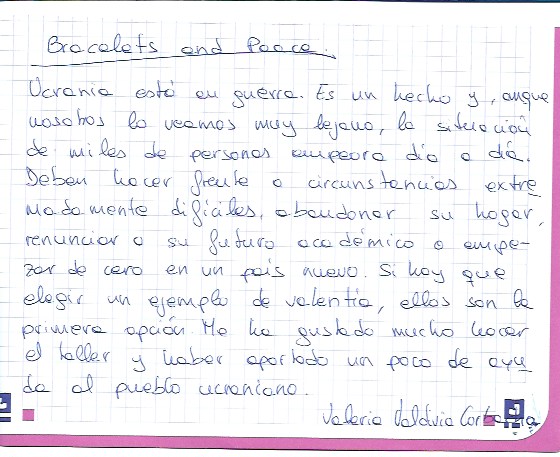 Bracelets and Peace.
Ucrania está en guerra. Es un hecho y, aunque
nosotros lo veamos muy lejano, la situación
de miles de personas empeora día a día.
Deben hacer frente a circunstancias extre
madamente difíciles, abandonar su hogar,
renunciar a su futuro académico o empe-
zar de cero en un país nuevo. Si hay que
elegir un ejemplo de valentía, ellos son la
primera opción. Me ha gustado mucho hacer
el taller y haber aportado un poco de ayu
da al pueblo ucraniano.
Valeria Valdivia